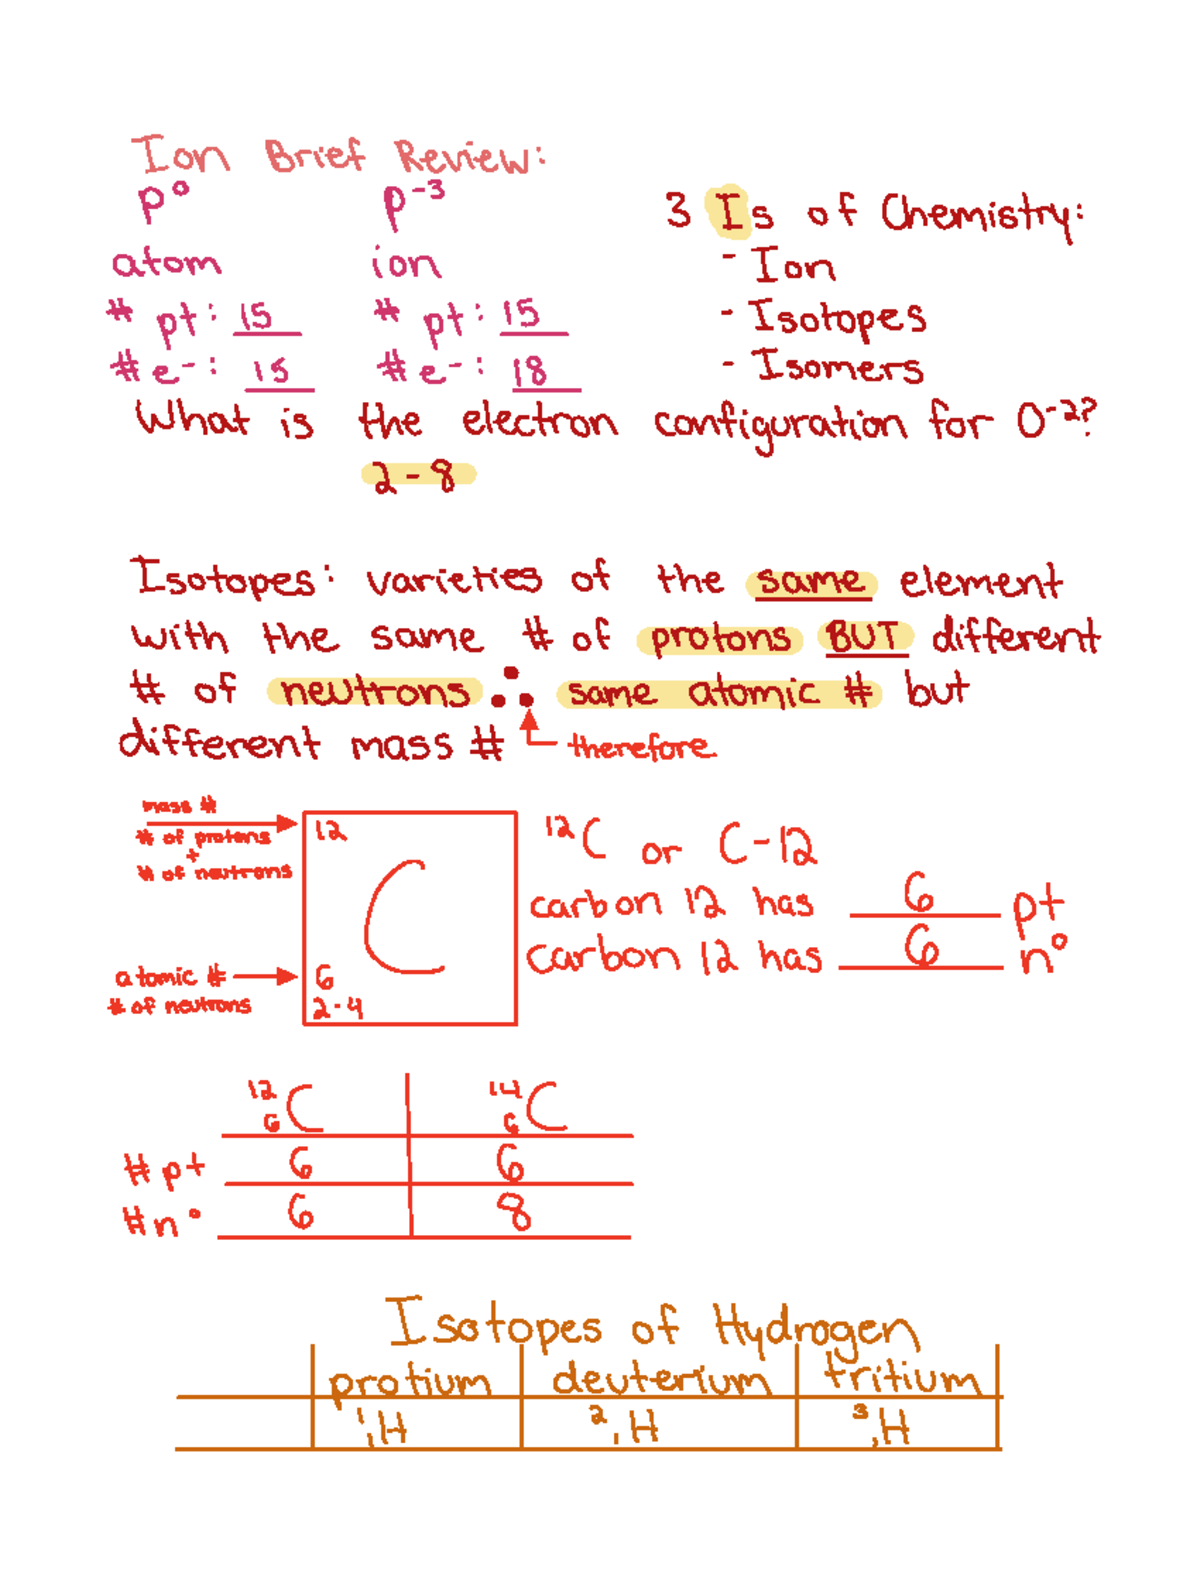 Ion Brief Review:
p⁰ p⁻³
atom ion
# pt: 15 # pt: 15
# e⁻: 15 # e⁻: 18
3 Is of Chemistry:
- Ion
- Isotopes
- Isomers
What is the electron configuration for O⁻²?
2-8
Isotopes: varieties of the same element
with the same # of protons BUT different
# of neutrons ∴ same atomic # but
different mass #
therefore
mass #
# of protons
+
# of neutrons
12
C
atomic #
# of neutrons
6
2-4
¹²C or C-12
carbon 12 has 6 pt
carbon 12 has 6 n⁰
¹²₆C ¹⁴₆C
# pt 6 6
# n⁰ 6 8
Isotopes of Hydrogen
protium deuterium tritium
¹₁H ²₁H ³₁H